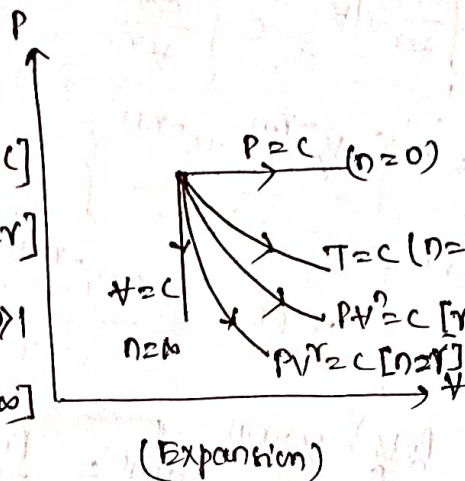 P
C]
P=C (n=0)
γ]
T=C (n=
V=C
>1
PVⁿ=C [γ
n=∞
PV^γ=C [n=γ]
∞]
V
(Expansion)